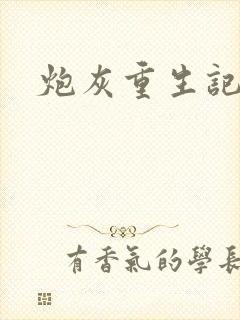 炮灰重生記
有香氣的學長